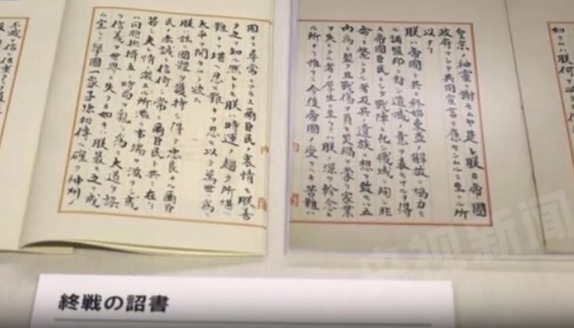 如クムハ朕何ヲ以
皇宗ノ神靈ニ謝セムヤ是レ朕カ帝國
政府ヲシテ共同宣言ニ應セシムルニ至レル所
以ナリ
朕ハ帝國ト共ニ終始東亞ノ解放ニ協力セ
ル諸盟邦ニ對シ遺憾ノ意ヲ表セサルヲ得
ス帝國臣民ニシテ戰陣ニ死シ職域ニ殉シ非
命ニ斃レタル者及其ノ遺族ニ想ヲ致セハ五
內爲ニ裂ク且戰傷ヲ負ヒ災禍ヲ蒙リ家業
ヲ失ヒタル者ノ厚生ニ至リテハ朕ノ深ク軫念ス
ル所ナリ惟フニ今後帝國ノ受クヘキ苦難ハ
固ヨリ尋常ニアラス爾臣民ノ衷情モ朕善
ク之ヲ知ル然レトモ朕ハ時運ノ趨ク所堪ヘ
難キヲ堪ヘ忍ヒ難キヲ忍ヒ以テ萬世ノ爲ニ
太平ヲ開カムト欲ス
朕ハ茲ニ國體ヲ護持シ得テ忠良ナル爾臣
民ノ赤誠ニ信倚シ常ニ爾臣民ト共ニ在リ
若シ夫レ情ノ激スル所濫ニ事端ヲ滋クシ或
ハ同胞排擠互ニ時局ヲ亂リ爲ニ大道ヲ誤
リ信義ヲ世界ニ失フカ如キハ朕最モ之ヲ戒
ム宜シク擧國一家子孫相傳ヘ確ク神州ノ
不滅ヲ信シ任重クシテ
終戦の詔書
央视新闻